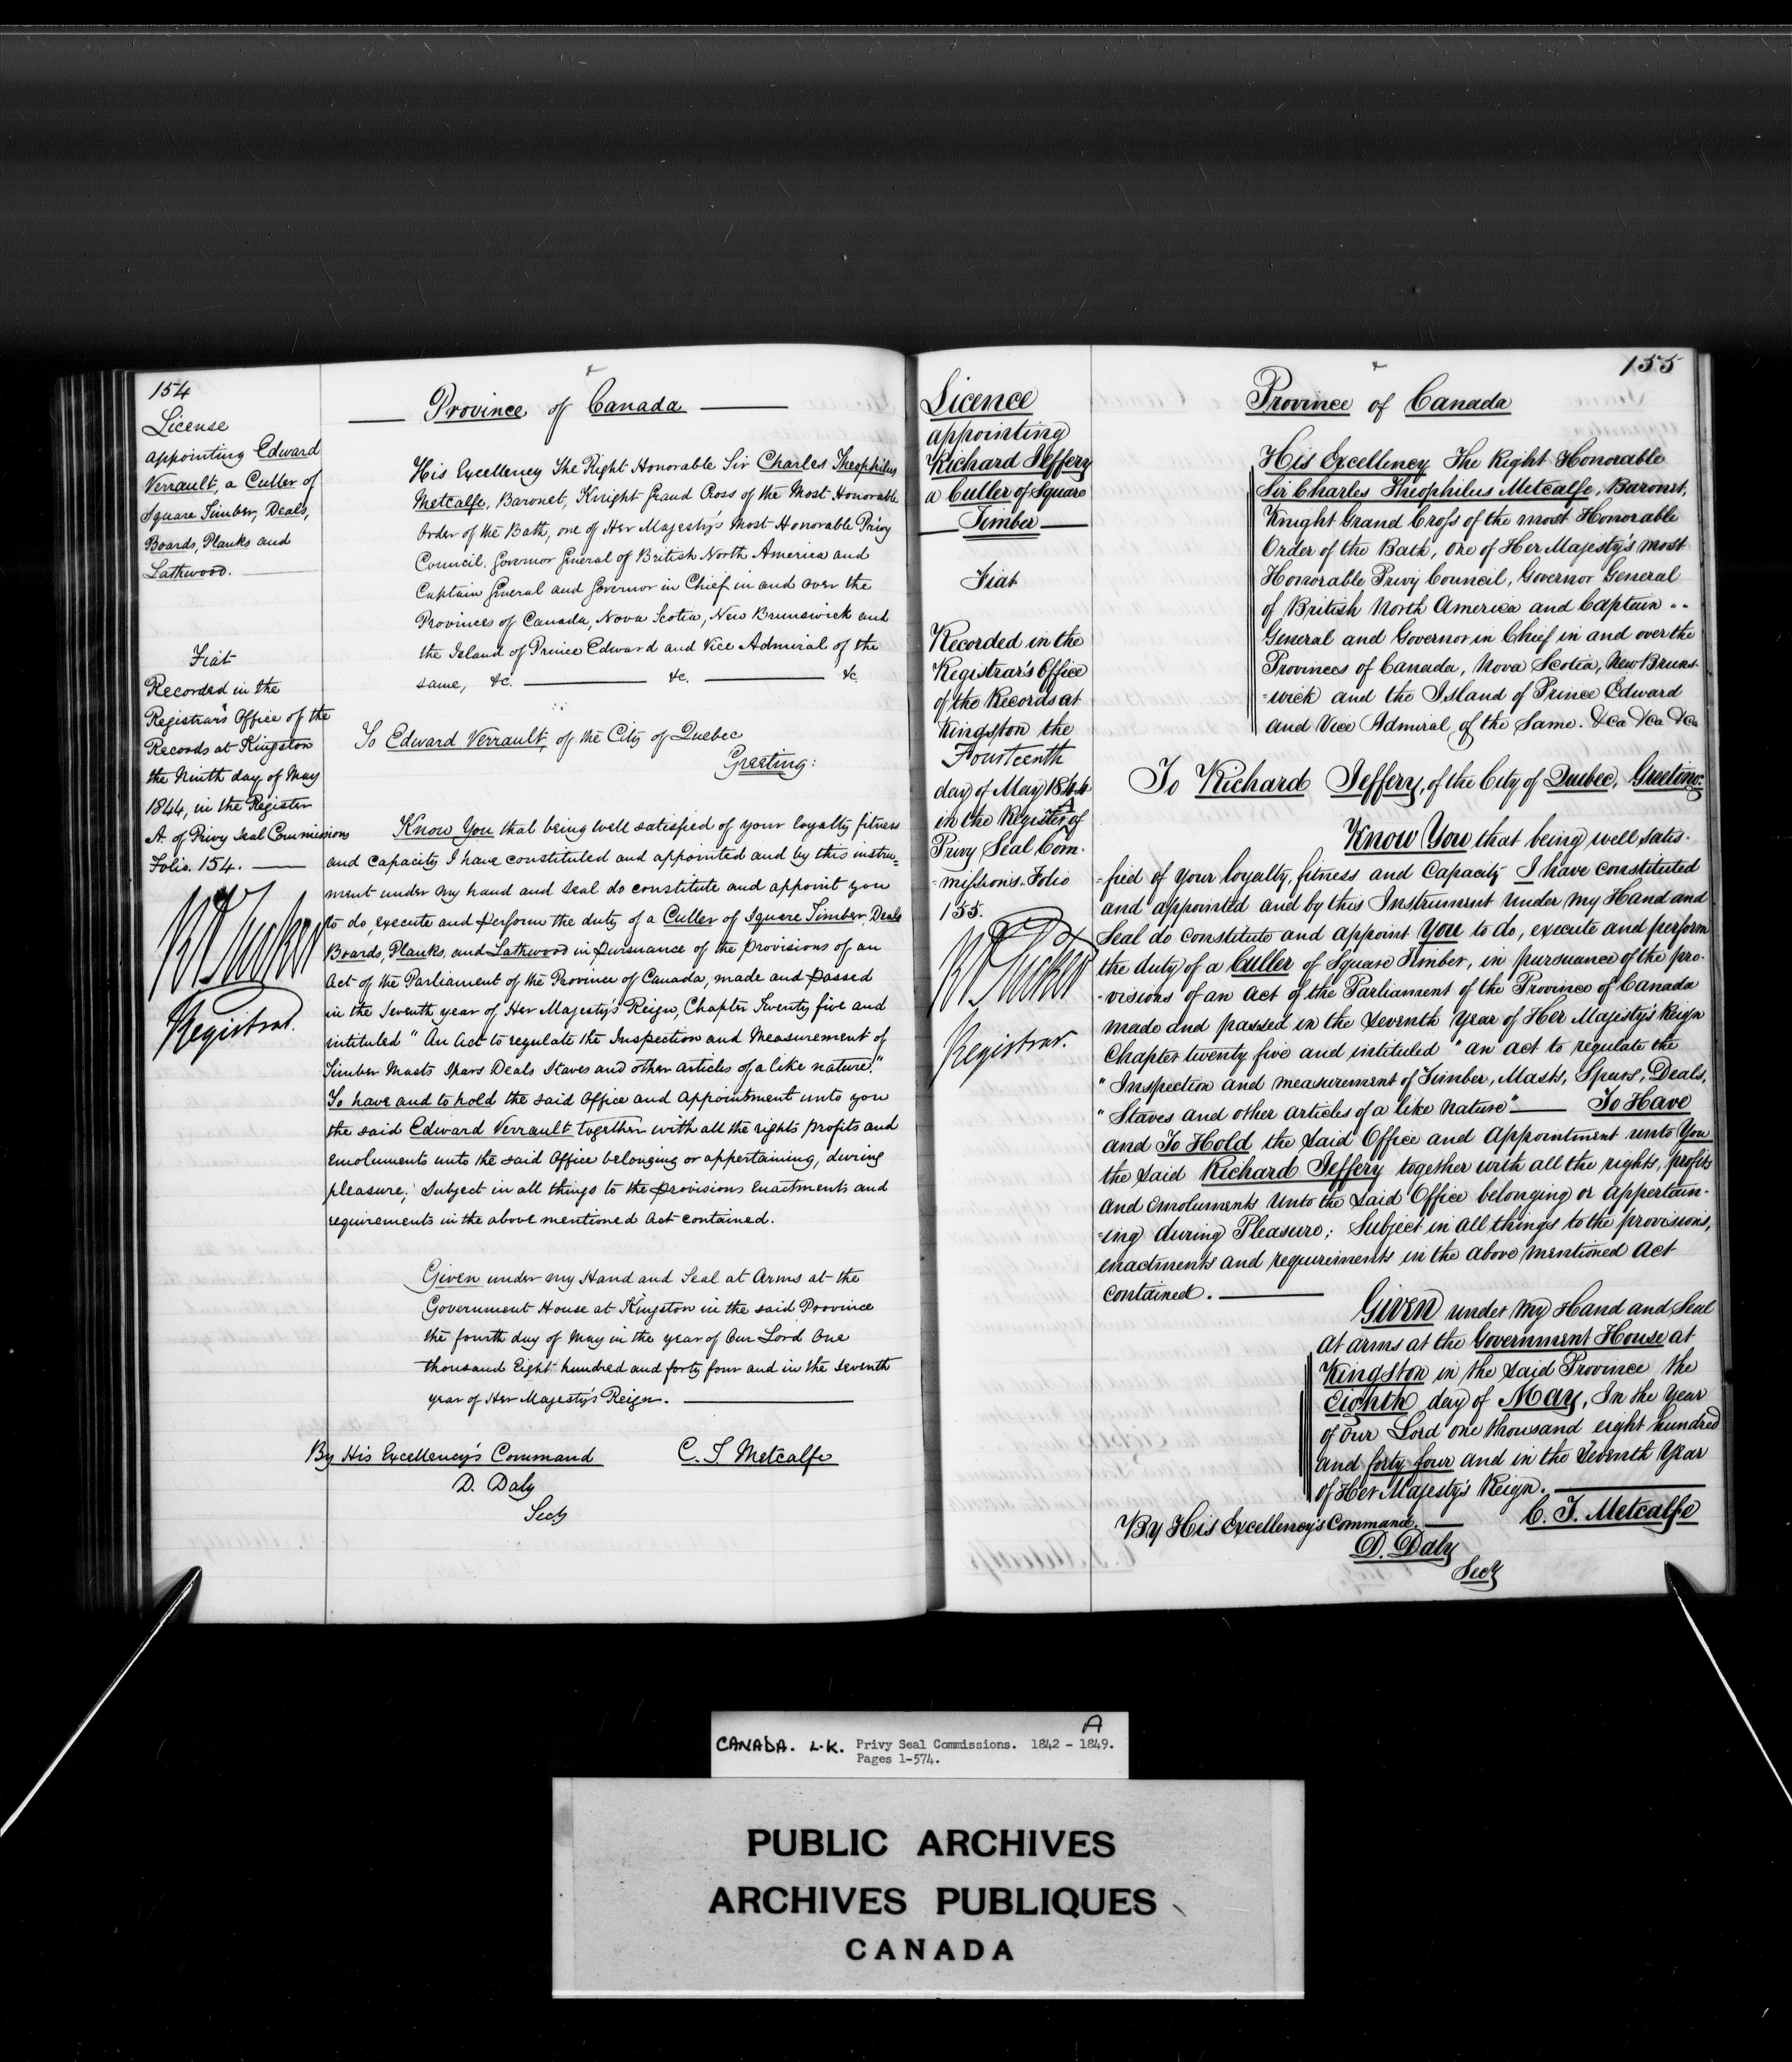 154
License
appointing Edward
Verrault, a Culler of
Square Timber, Deals,
Boards, Planks and
Lathwood.
Fiat
Recorded in the
Registrar's Office of the
Records at Kingston
the Ninth day of May
1844, in the Register
A. of Privy Seal Commissions
Folio. 154.
Registrar.
Province of Canada
His Excellency The Right Honorable Sir Charles Theophilus
Metcalfe, Baronet, Knight Grand Cross of the Most Honorable
Order of the Bath, one of Her Majesty's Most Honorable Privy
Council, Governor General of British North America and
Captain General and Governor in Chief in and over the
Provinces of Canada, Nova Scotia, New Brunswick and
the Island of Prince Edward and Vice Admiral of the
same, &c. &c. &c
To Edward Verrault, of the City of Quebec
Greeting:
Know You that being well satisfied of your loyalty fitness
and capacity I have constituted and appointed and by this instru=
ment under my hand and seal do constitute and appoint you
to do, execute and perform the duty of a Culler of Square Timber, Deals
Boards, Planks, and Lathwood in pursuance of the provisions of an
Act of the Parliament of the Province of Canada, made and passed
in the Seventh year of Her Majesty's Reign, Chapter Twenty five and
intituled "An Act to regulate the Inspection and Measurement of
Timber Masts Spars Deals Staves and other articles of a like nature."
To have and to hold the said Office and Appointment unto you
the said Edward Verrault together with all the rights profits and
Emoluments unto the said Office belonging or appertaining, during
pleasure; Subject in all things to the provisions Enactments and
requirements in the above mentioned Act contained.
Given under my Hand and Seal at Arms at the
Government House at Kingston in the said Province
the fourth day of May in the year of Our Lord One
thousand Eight hundred and forty four and in the seventh
year of Her Majesty's Reign.
By His Excellency's Command C. T. Metcalfe
D. Daly
Secy
155
Licence
appointing
Richard Jeffery
a Culler of Square
Timber
Fiat
Recorded in the
Registrar's Office
of the Records at
Kingston the
Fourteenth
day of May 1844
A
in the Register of
Privy Seal Com-
-missions. Folio
155.
Registrar.
Province of Canada
His Excellency The Right Honorable
Sir Charles Theophilus Metcalfe, Baronet,
Knight Grand Cross of the most Honorable
Order of the Bath, one of Her Majesty's most
Honorable Privy Council, Governor General
of British North America and Captain
General and Governor in Chief in and over the
Provinces of Canada, Nova Scotia, New Bruns-
-wick and the Island of Prince Edward
and Vice Admiral of the Same. &ca &ca &ca
To Richard Jeffery, of the City of Quebec, Greeting:
Know You that being well satis-
-fied of your loyalty, fitness and Capacity I have constituted
and appointed and by this Instrument under my Hand and
Seal do constitute and appoint You to do, execute and perform
the duty of a Culler of Square Timber, in pursuance of the pro-
-visions of an Act of the Parliament of the Province of Canada
made and passed in the Seventh Year of Her Majesty's Reign
Chapter twenty five and intituled "an act to regulate the
"Inspection and measurement of Timber, Masts, Spars, Deals,
"Staves and other articles of a like Nature" To Have
and To Hold the Said Office and Appointment unto You
the Said Richard Jeffery together with all the rights, profits
and Emoluments Unto the Said Office belonging or appertain-
-ing during Pleasure; Subject in all things to the provisions,
enactments and requirements in the above mentioned Act
contained.
Given under my Hand and Seal
at arms at the Government House at
Kingston in the said Province the
Eighth day of May, In the Year
of Our Lord one thousand eight hundred
and forty four and in the Seventh Year
of Her Majesty's Reign.
By His Excellency's Command. C. T. Metcalfe
D. Daly
Secy
A
CANADA. L.K. Privy Seal Commissions. 1842 - 1849.
Pages 1-574.
PUBLIC ARCHIVES
ARCHIVES PUBLIQUES
CANADA